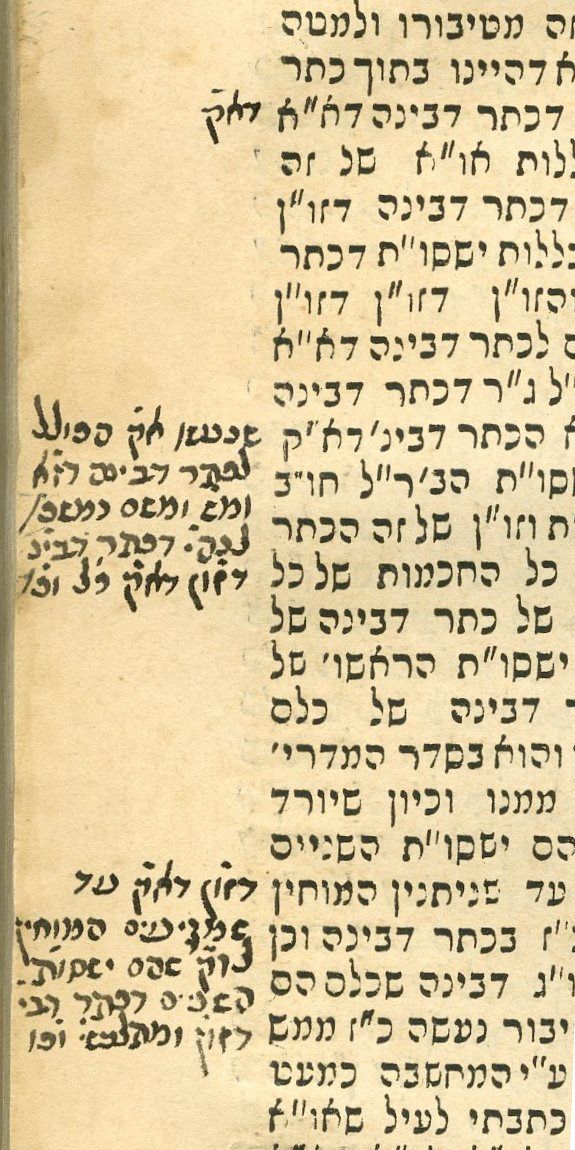 זה מטיבורו ולמטה
א דהיינו בתוך כתר
דכתר דבינה דא"א
ללות או"א של זה
דכתר דבינה דזו"ן
כללות ישסו"ת דכתר
יהזו"ן דזו"ן דזו"ן
ם לכתר דבינה דא"א
"ל ג"ר דכתר דבינה
א הכתר דבינ' דא"ק
שסו"ת הב' ר"ל חו"ב
ת וזו"ן של זה הכתר
כל החכמות של כל
של כתר דבינה של
ישסו"ת הראשו' של
ר דבינה של כלם
והוא בסדר המדרי'
ממנו וכיון שיורד
הם ישסו"ת השניים
עד שניתנין המוחין
"ז בכתר דבינה וכן
ו"ג דבינה שכלם הם
יבור נעשה כ"ז ממש
ע"י המחשבה כמעט
כתבתי לעיל שאו"א
דא"ק
א"ק הכולל
לכתר דבינה
דכתר דבינ'
דזון דא"ק
דזון דא"ק עד
המוחין
שהם ישסות
דכתר
דזון